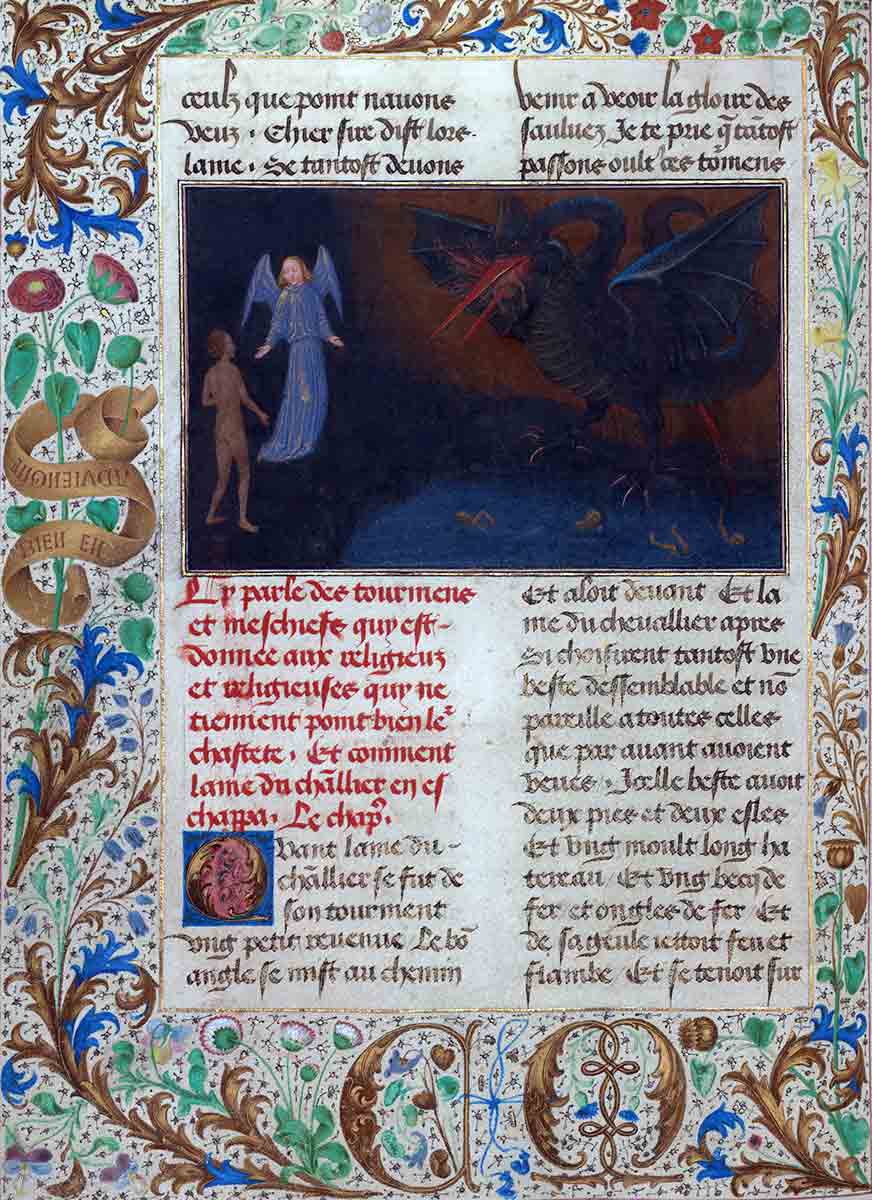 ceulz que point nauons
veuz . Chier sire dist lors
lame . Se tantost deuons
venir a veoir la gloire des
sauluez Je te prie q̄ tātost
passons oult ces tōmens
Cy parle des tourmens
et meschiefz quy est
donnee aux religieuz
et religieuses quy ne
tiennent point bien le²
chastete . Et comment
lame du chāllier en es
chappa . Le chap̄ .
Quant lame du
chāllier se fut de
son tourment
vng petit reuenue Le bō
angle se mist au chemin
Et aloit deuant Et la
me du cheuallier apres
Si choisirent tantost vne
beste dessemblable et nō
pareille a toutes celles
que par auant auoient
veues / Icelle beste auoit
deux pies et deux esles
Et vng moult long ha
tereau / Et vng becq de
fer et ongles de fer / Et
de sa geule iettoit feu et
flambe Et se tenoit sur
BIEN EN
ADVIENGNE
C M